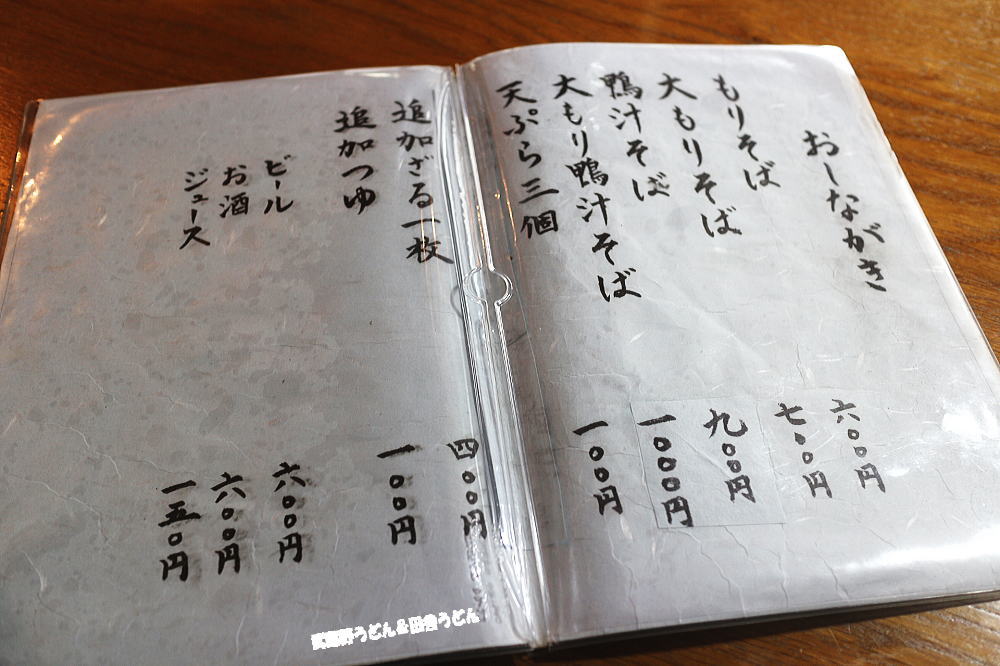 おしながき
もりそば 六〇〇円
大もりそば 七〇〇円
鴨汁そば 九〇〇円
大もり鴨汁そば 一〇〇〇円
天ぷら三個 一〇〇円
追加ざる一枚 四〇〇円
追加つゆ 一〇〇円
ビール 六〇〇円
お酒 六〇〇円
ジュース 一五〇円
武蔵野うどん&田舎うどん